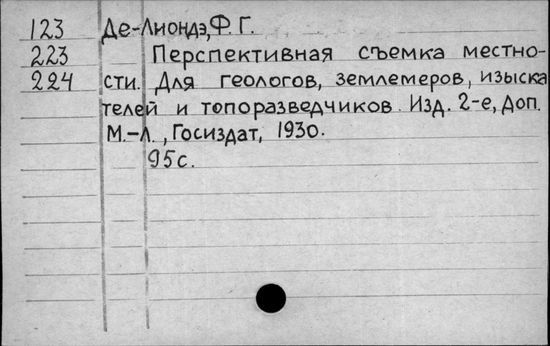 123 Де-Лиондэ, Ф. Г.
223 Перспективная съемка местно-
224 сти. Для геологов, землемеров, изыска
телей и топоразведчиков. Изд. 2-е, Доп.
М.-Л., Госиздат, 1930.
95с.